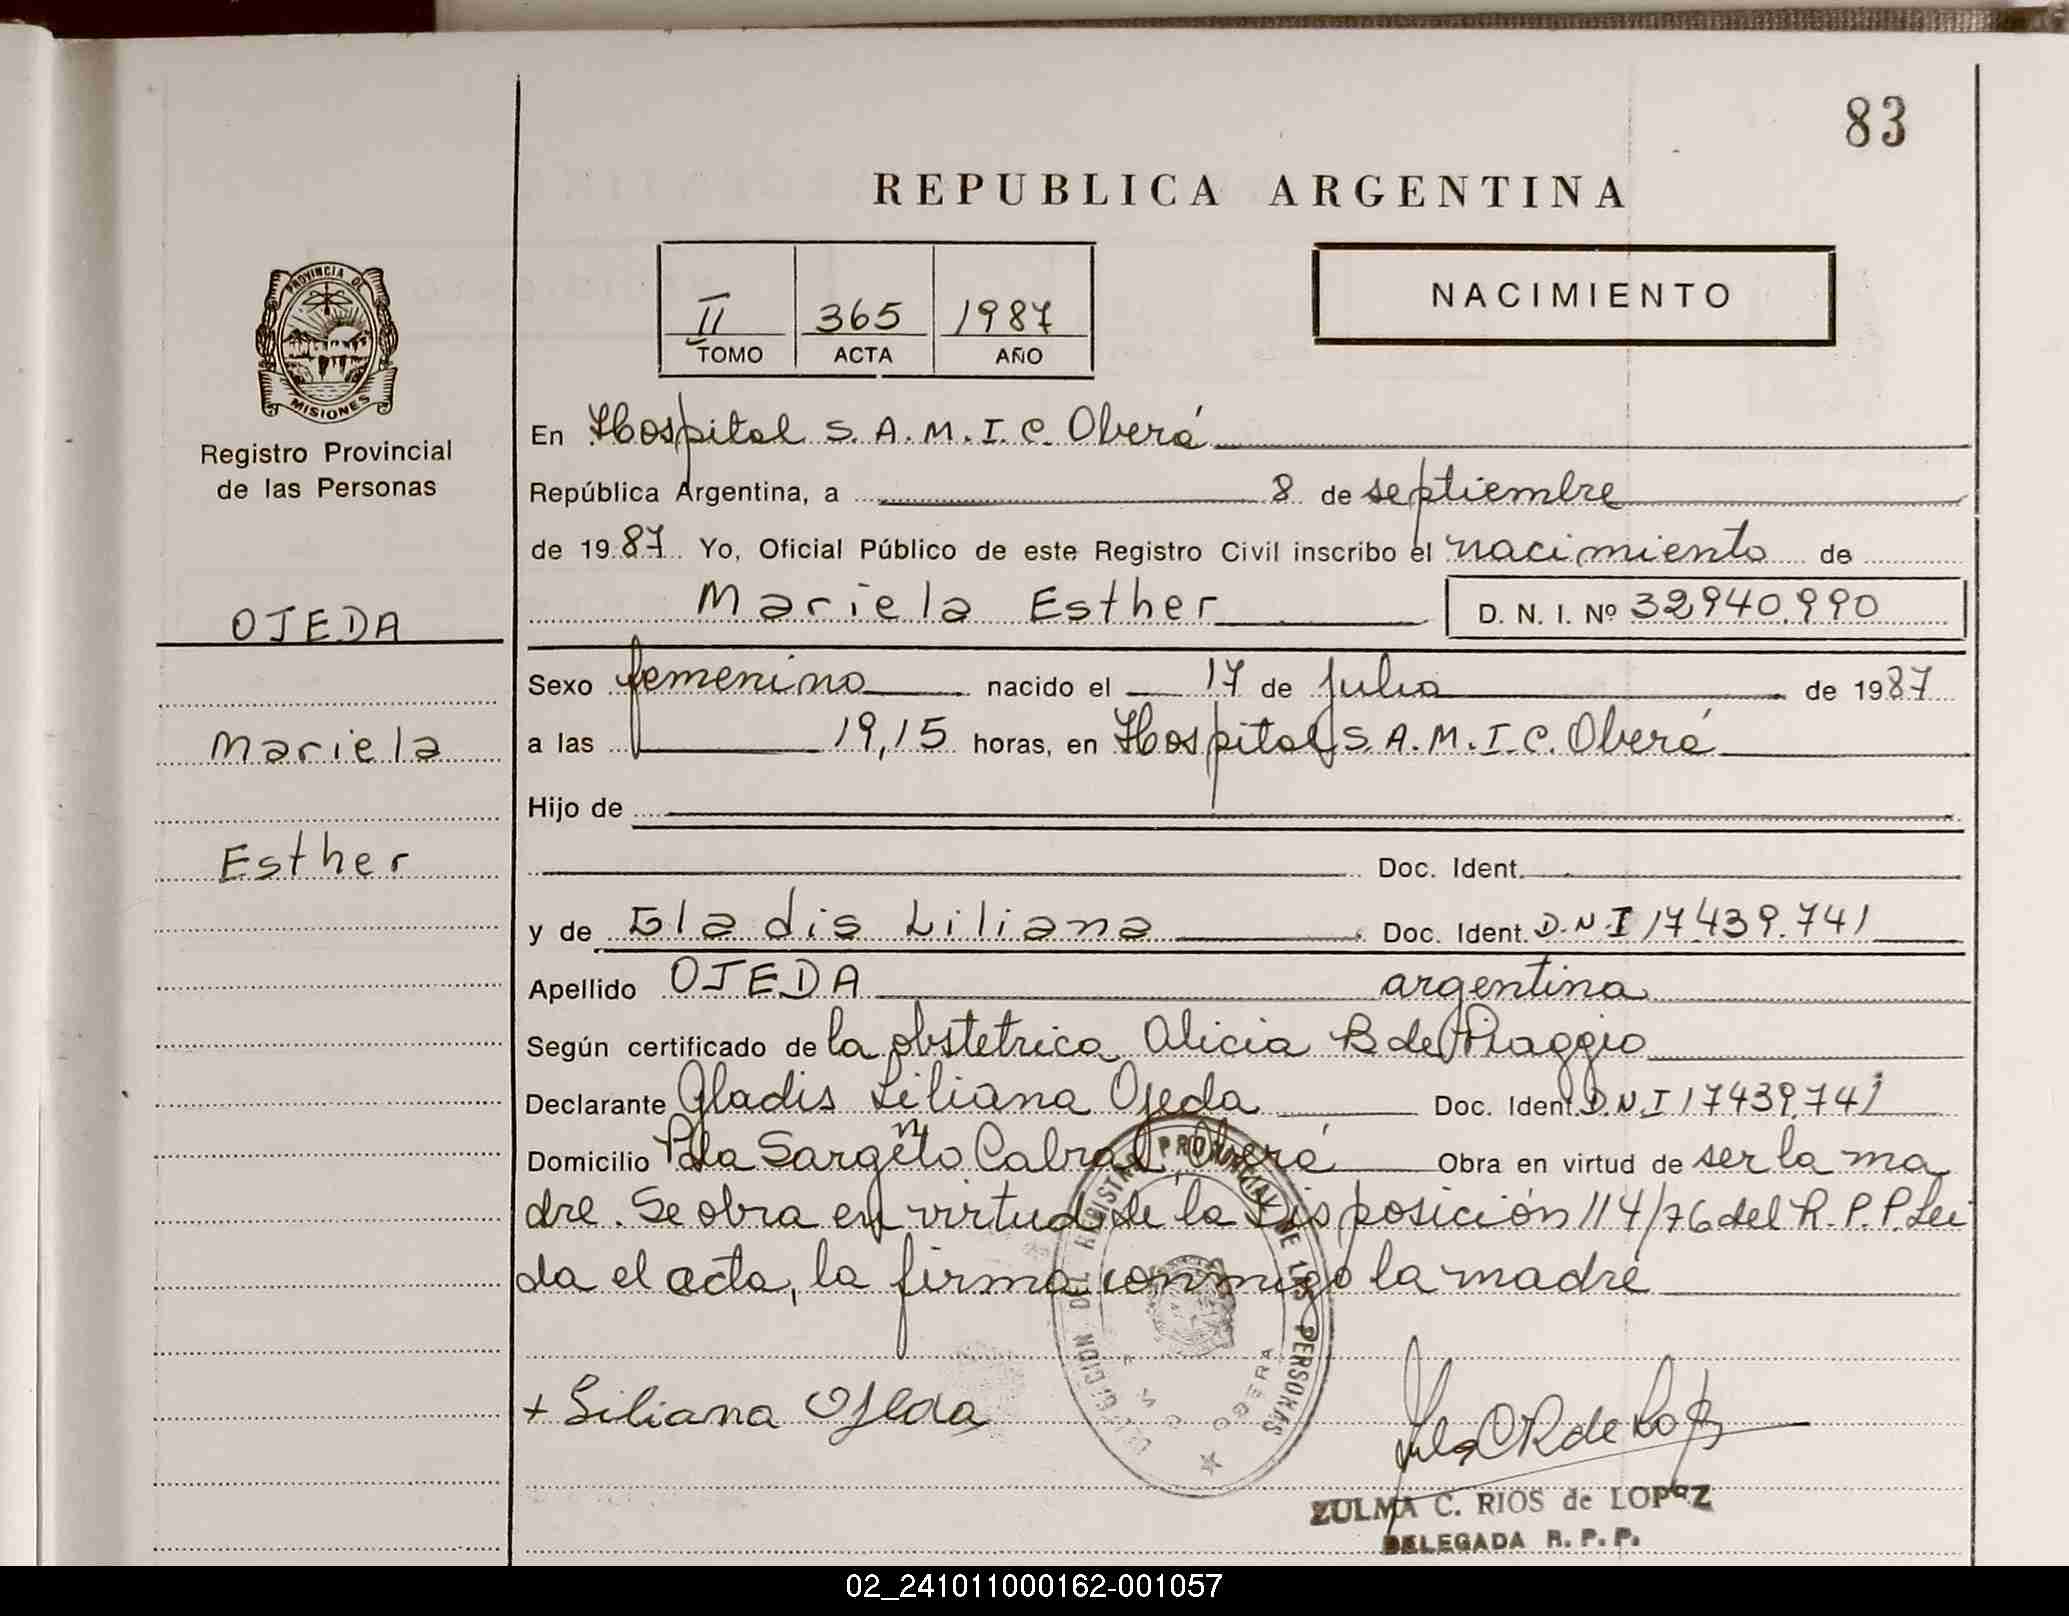 83
REPUBLICA ARGENTINA
II 365 1987
TOMO ACTA AÑO
NACIMIENTO
PROVINCIA DE
MISIONES
Registro Provincial
de las Personas
OJEDA
Mariela
Esther
En Hospital S.A.M.I.C. Oberá
República Argentina, a 8 de septiembre
de 1987 Yo, Oficial Público de este Registro Civil inscribo el nacimiento de
Mariela Esther D. N. I. Nº 32940.990
Sexo femenino nacido el 17 de julio de 1987
a las 19,15 horas, en Hospital S.A.M.I.C. Oberá
Hijo de
Doc. Ident.
y de Gladis Liliana Doc. Ident. D.N.I 17439.741
Apellido OJEDA argentina
Según certificado de la obstetrica Alicia B de Piaggio
Declarante Gladis Liliana Ojeda Doc. Ident. D.N.I 17439.741
Domicilio Pda Sargento Cabral Oberá Obra en virtud de ser la ma
dre. Se obra en virtud de la Disposición 114/76 del R.P.P. Lei
da el acta, la firma conmigo la madre
DELEGACION DEL REGISTRO PROVINCIAL DE LAS PERSONAS
+ Liliana Ojeda
ZULMA C. RIOS de LOPEZ
DELEGADA R. P. P.
02_241011000162-001057